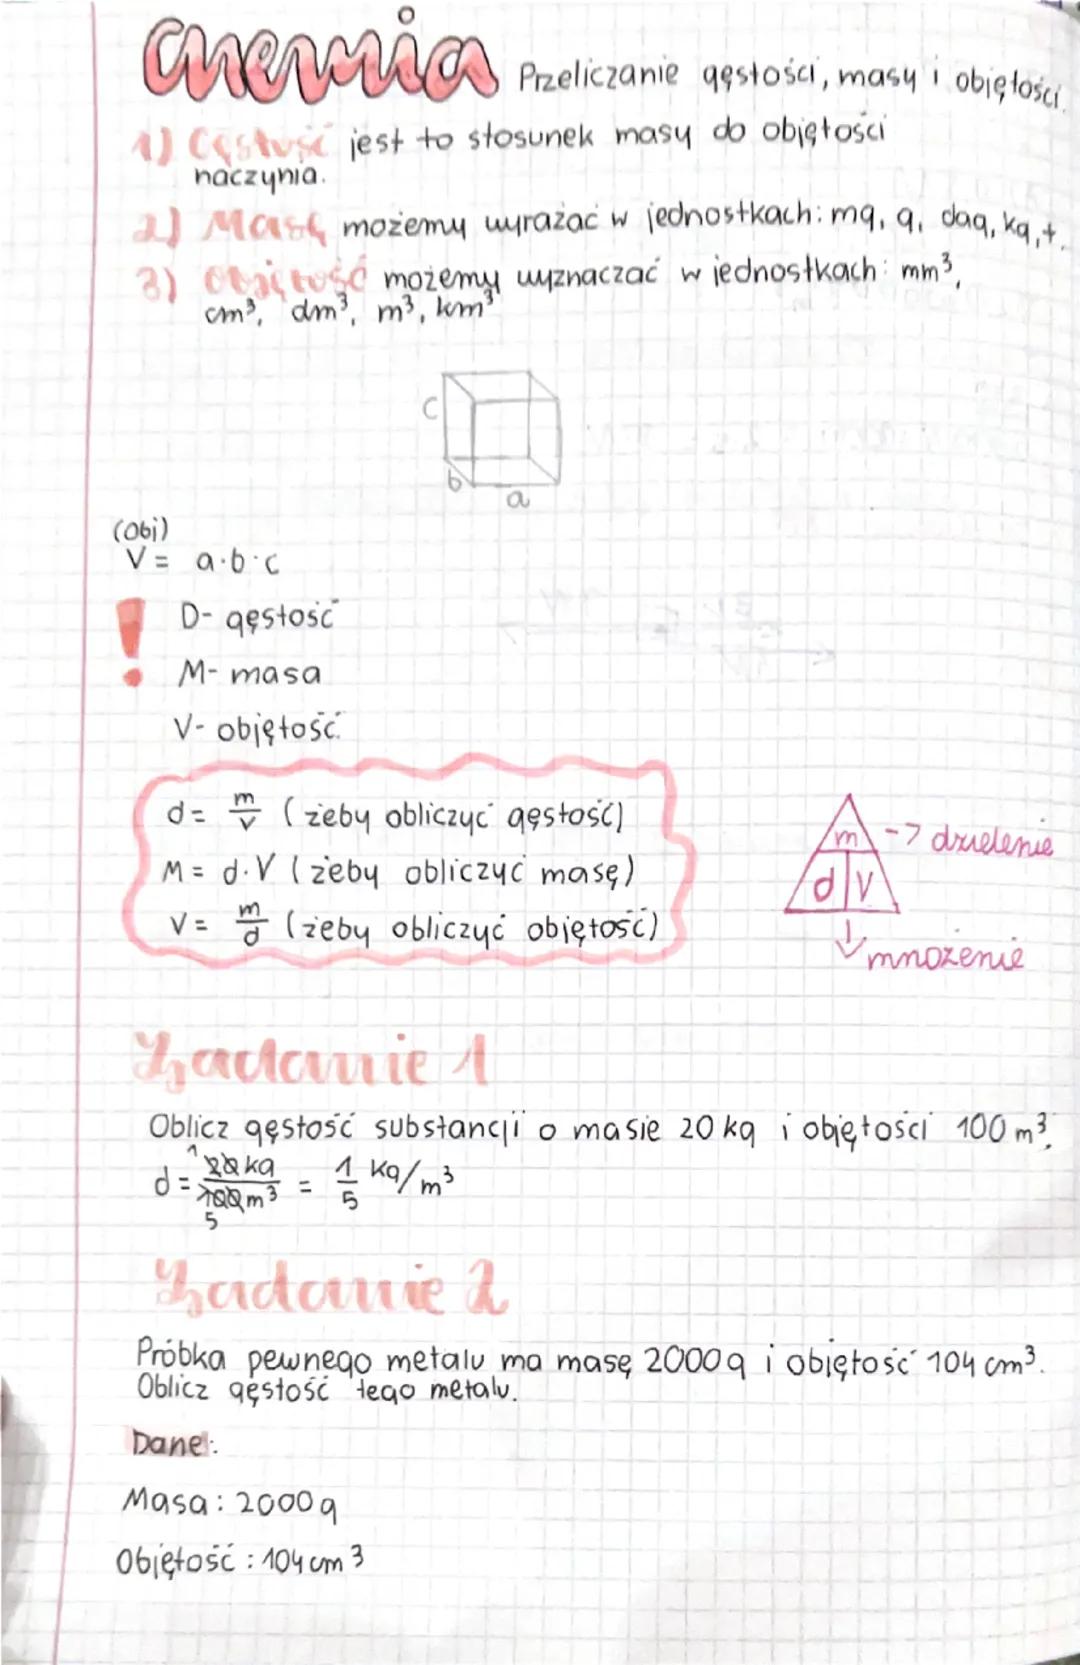 chemia Przeliczanie gęstości, masy i objętości.
1) Gęstość jest to stosunek masy do objętości
naczynia.
2) Masę możemy wyrażać w jednostkach: mg, g, dag, kg, t.
3) Objętość możemy wyznaczać w jednostkach: mm³,
cm³, dm³, m³, km³
c
b
a
(obj)
V = a·b·c
! D- gęstość
M- masa
V- objętość.
d = m/v (żeby obliczyć gęstość)
M = d·V (żeby obliczyć masę)
V = m/d (żeby obliczyć objętość)
m -> dzielenie
d V
↓ mnożenie
Zadanie 1
Oblicz gęstość substancji o masie 20 kg i objętości 100 m³.
1
d = 20 kg / 100 m³ = 1/5 kg/m³
5
Zadanie 2
Próbka pewnego metalu ma masę 2000 g i objętość 104 cm³.
Oblicz gęstość tego metalu.
Dane:
Masa: 2000 g
Objętość: 104 cm³